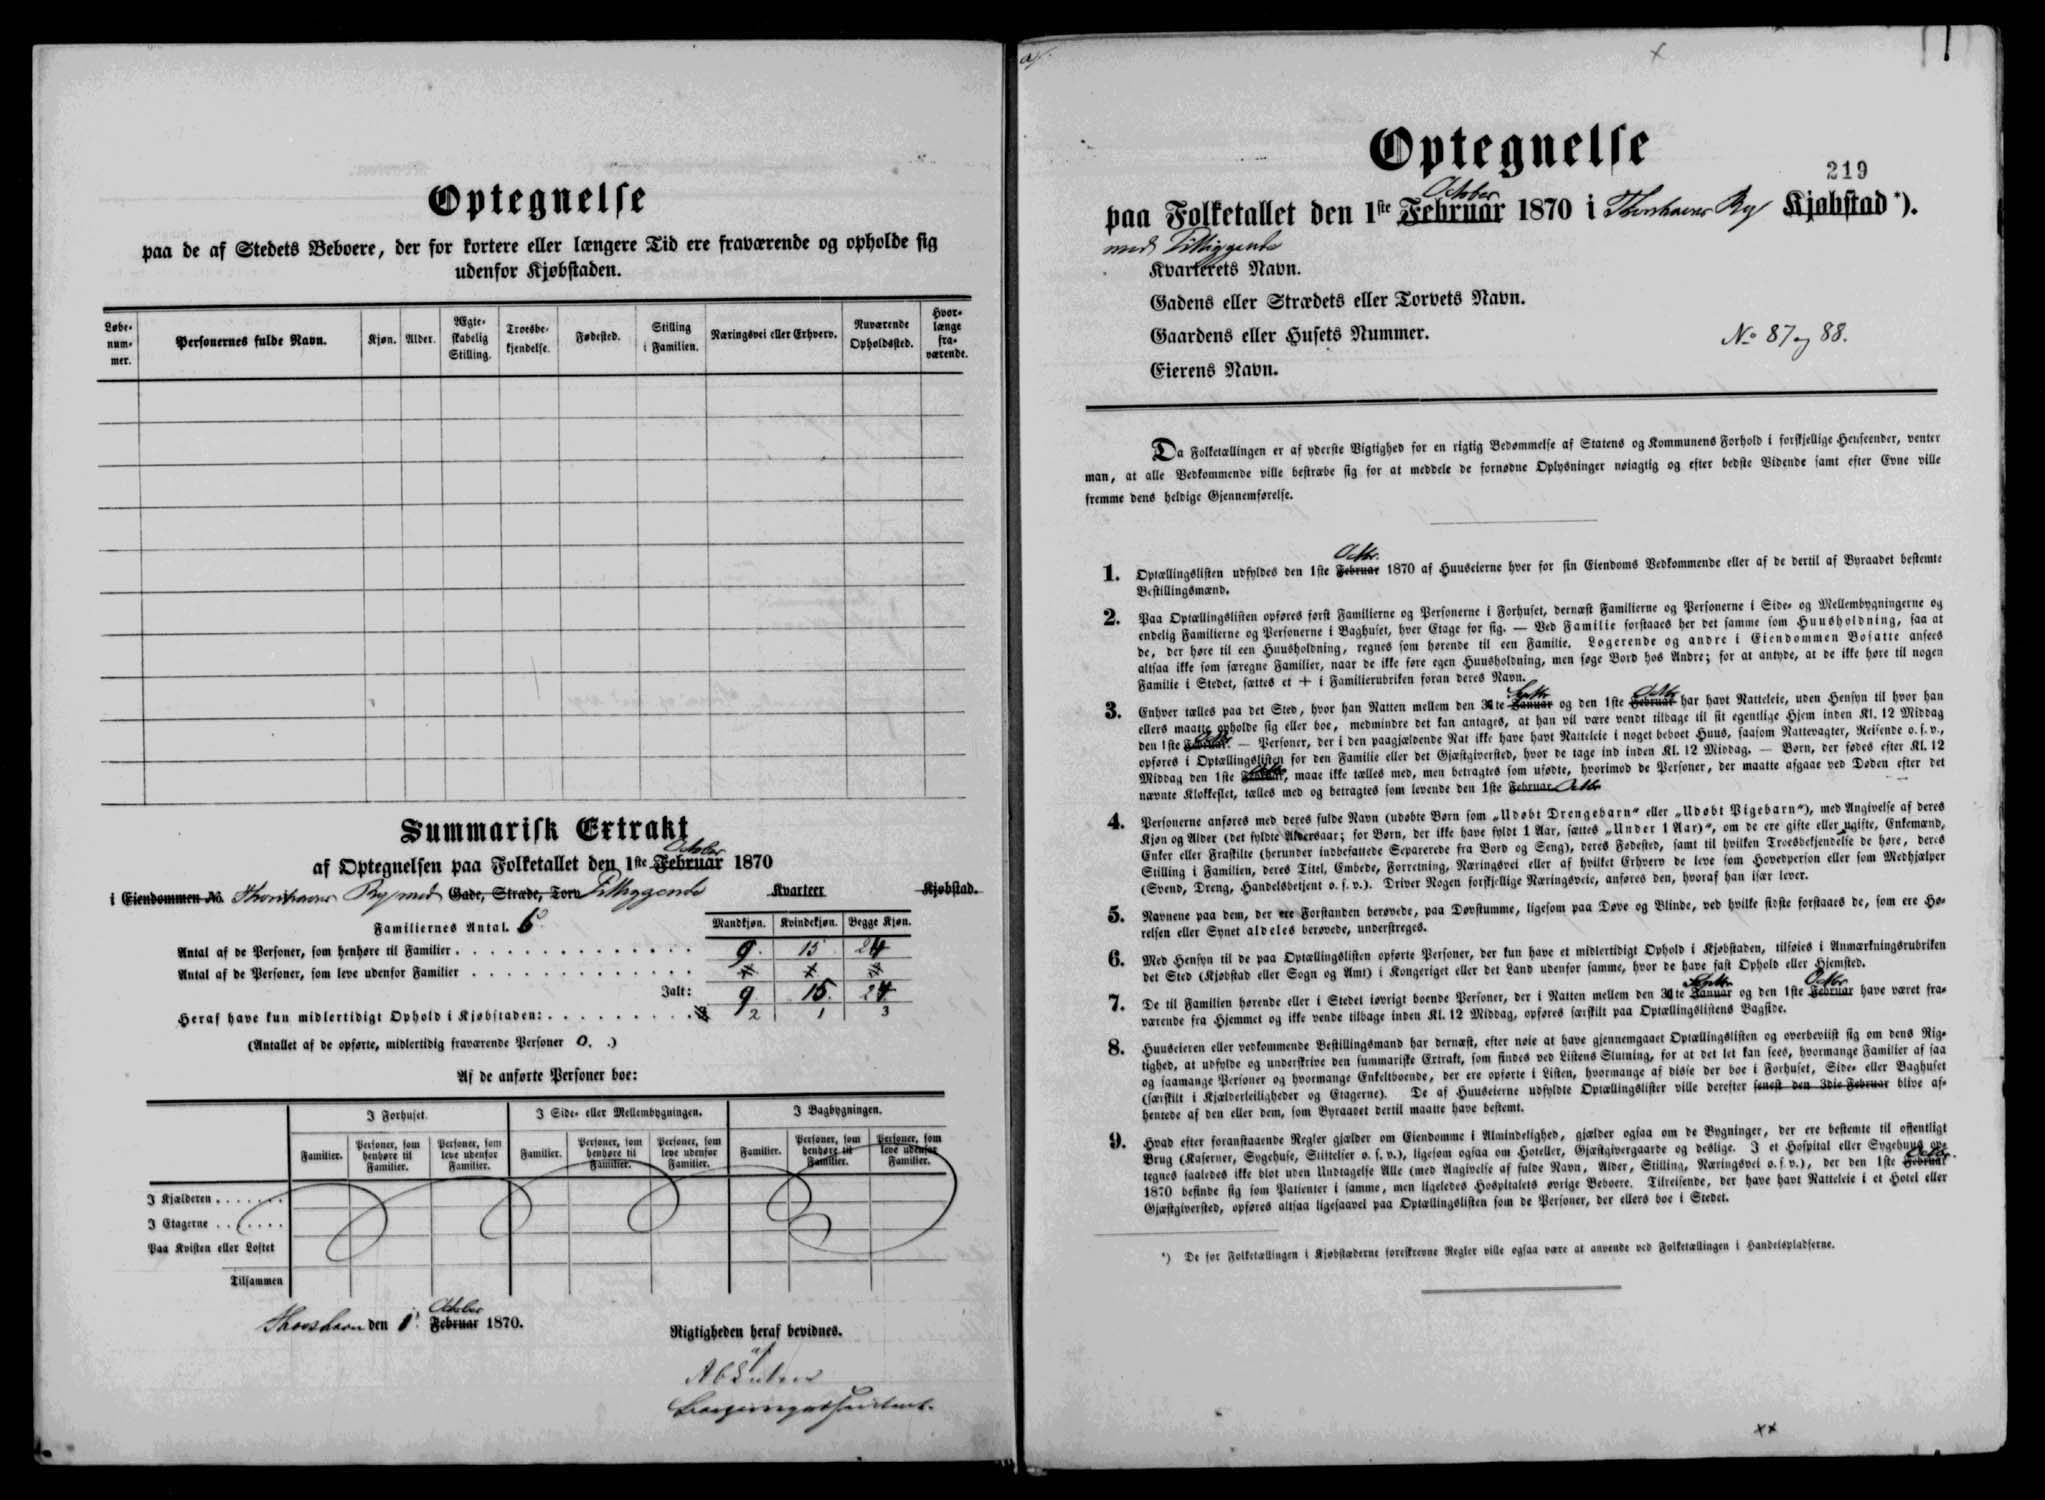 Optegnelse
paa de af Stedets Beboere, der for kortere eller længere Tid ere fraværende og opholde sig
udenfor Kjøbstaden.
Løbe-
num-
mer.
Personernes fulde Navn.
Kjøn.
Alder.
Ægte-
skabelig
Stilling.
Troesbe-
kjendelse.
Fødested.
Stilling
i Familien.
Næringsvei eller Erhverv.
Nuværende
Opholdssted.
Hvor-
længe
fra-
værende.
Summarisk Extrakt
October
af Optegnelsen paa Folketallet den 1ste Februar 1870
i Eiendommen No. Thorshavns By med Gade, Stræde, Torv Tilliggende Kvarteer Kjøbstad.
Familiernes Antal. 6
Mandkjøn. Kvindekjøn. Begge Kjøn.
Antal af de Personer, som henhøre til Familier 9. 15 24
Antal af de Personer, som leve udenfor Familier
Ialt: 9 15. 24
Heraf have kun midlertidigt Ophold i Kjøbstaden: 2 1 3
(Antallet af de opførte, midlertidig fraværende Personer 0. .)
Af de anførte Personer boe:
I Forhuset. I Side- eller Mellembygningen. I Bagbygningen.
Familier. Personer, som henhøre til Familier. Personer, som leve udenfor Familier. Familier. Personer, som henhøre til Familier. Personer, som leve udenfor Familier. Familier. Personer, som henhøre til Familier. Personer, som leve udenfor Familier.
I Kjælderen
I Etagerne
Paa Kvisten eller Loftet
Tilsammen
October
Thorshavn den 1 Februar 1870.
Rigtigheden heraf bevidnes.
Optegnelse
219
October
paa Folketallet den 1ste Februar 1870 i Thorshavns By Kjøbstad*).
med Tilliggende
Kvarterets Navn.
Gadens eller Strædets eller Torvets Navn.
Gaardens eller Husets Nummer. No 87 og 88.
Eierens Navn.
Da Folketællingen er af yderste Vigtighed for en rigtig Bedømmelse af Statens og Kommunens Forhold i forskjellige Henseender, venter
man, at alle Vedkommende ville bestræbe sig for at meddele de fornødne Oplysninger nøiagtig og efter bedste Vidende samt efter Evne ville
fremme dens heldige Gjennemførelse.
Octbr.
1. Optællingslisten udfyldes den 1ste Februar 1870 af Huuseierne hver for sin Eiendoms Vedkommende eller af de dertil af Byraadet bestemte
Bestillingsmænd.
2. Paa Optællingslisten opføres først Familierne og Personerne i Forhuset, dernæst Familierne og Personerne i Side- og Mellembygningerne og
endelig Familierne og Personerne i Baghuset, hver Etage for sig. — Ved Familie forstaaes her det samme som Huusholdning, saa at
de, der høre til een Huusholdning, regnes som hørende til een Familie. Logerende og andre i Eiendommen Bosatte ansees
altsaa ikke som særegne Familier, naar de ikke føre egen Huusholdning, men søge Bord hos Andre; for at antyde, at de ikke høre til nogen
Familie i Stedet, sættes et + i Familierubriken foran deres Navn.
Septbr Octbr
3. Enhver tælles paa det Sted, hvor han Natten mellem den 31te Januar og den 1ste Februar har havt Natteleie, uden Hensyn til hvor han
ellers maatte opholde sig eller boe, medmindre det kan antages, at han vil være vendt tilbage til sit egentlige Hjem inden Kl. 12 Middag
den 1ste Februar. — Personer, der i den paagjældende Nat ikke have havt Natteleie i noget beboet Huus, saasom Nattevagter, Reisende o. s. v.,
opføres i Optællingslisten for den Familie eller det Gjæstgiversted, hvor de tage ind inden Kl. 12 Middag. — Børn, der fødes efter Kl. 12
Middag den 1ste Februar, maae ikke tælles med, men betragtes som ufødte, hvorimod de Personer, der maatte afgaae ved Døden efter det
nævnte Klokkeslet, tælles med og betragtes som levende den 1ste Februar Octbr
4. Personerne anføres med deres fulde Navn (udøbte Børn som „Udøbt Drengebarn“ eller „Udøbt Pigebarn“), med Angivelse af deres
Kjøn og Alder (det fyldte Aldersaar; for Børn, der ikke have fyldt 1 Aar, sættes „Under 1 Aar)“, om de ere gifte eller ugifte, Enkemænd,
Enker eller Fraskilte (herunder indbefattede Separerede fra Bord og Seng), deres Fødested, samt til hvilken Troesbekjendelse de høre, deres
Stilling i Familien, deres Titel, Embede, Forretning, Næringsvei eller af hvilket Erhverv de leve som Hovedperson eller som Medhjælper
(Svend, Dreng, Handelsbetjent o. s. v.). Driver Nogen forskjellige Næringsveie, anføres den, hvoraf han især lever.
5. Navnene paa dem, der ere Forstanden berøvede, paa Døvstumme, ligesom paa Døve og Blinde, ved hvilke sidste forstaaes de, som ere Hø-
relsen eller Synet aldeles berøvede, understreges.
6. Med Hensyn til de paa Optællingslisten opførte Personer, der kun have et midlertidigt Ophold i Kjøbstaden, tilføies i Anmærkningsrubriken
det Sted (Kjøbstad eller Sogn og Amt) i Kongeriget eller det Land udenfor samme, hvor de have fast Ophold eller Hjemsted.
Septbr Octbr
7. De til Familien hørende eller i Stedet iøvrigt boende Personer, der i Natten mellem den 31te Januar og den 1ste Februar have været fra-
værende fra Hjemmet og ikke vende tilbage inden Kl. 12 Middag, opføres særskilt paa Optællingslistens Bagside.
8. Huuseieren eller vedkommende Bestillingsmand har dernæst, efter nøie at have gjennemgaaet Optællingslisten og overbeviist sig om dens Rig-
tighed, at udfylde og underskrive den summariske Extrakt, som findes ved Listens Slutning, for at det let kan sees, hvormange Familier af saa
og saamange Personer og hvormange Enkeltboende, der ere opførte i Listen, hvormange af disse der boe i Forhuset, Side- eller Baghuset
(særskilt i Kjælderleiligheder og Etagerne). De af Huuseierne udfyldte Optællingslister ville derefter senest den 3die Februar blive af-
hentede af den eller dem, som Byraadet dertil maatte have bestemt.
9. Hvad efter foranstaaende Regler gjælder om Eiendomme i Almindelighed, gjælder ogsaa om de Bygninger, der ere bestemte til offentligt
Brug (Kaserner, Sygehuse, Stiftelser o. s. v.), ligesom ogsaa om Hoteller, Gjæstgivergaarde og deslige. I et Hospital eller Sygehuus op-
tegnes saaledes ikke blot uden Undtagelse Alle (med Angivelse af fulde Navn, Alder, Stilling, Næringsvei o. s. v.), der den 1ste Februar
1870 befinde sig som Patienter i samme, men ligeledes Hospitalets øvrige Beboere. Tilreisende, der have havt Natteleie i et Hotel eller
Gjæstgiversted, opføres altsaa ligesaavel paa Optællingslisten som de Personer, der ellers boe i Stedet.
*) De for Folketællingen i Kjøbstæderne foreskrevne Regler ville ogsaa være at anvende ved Folketællingen i Handelspladserne.